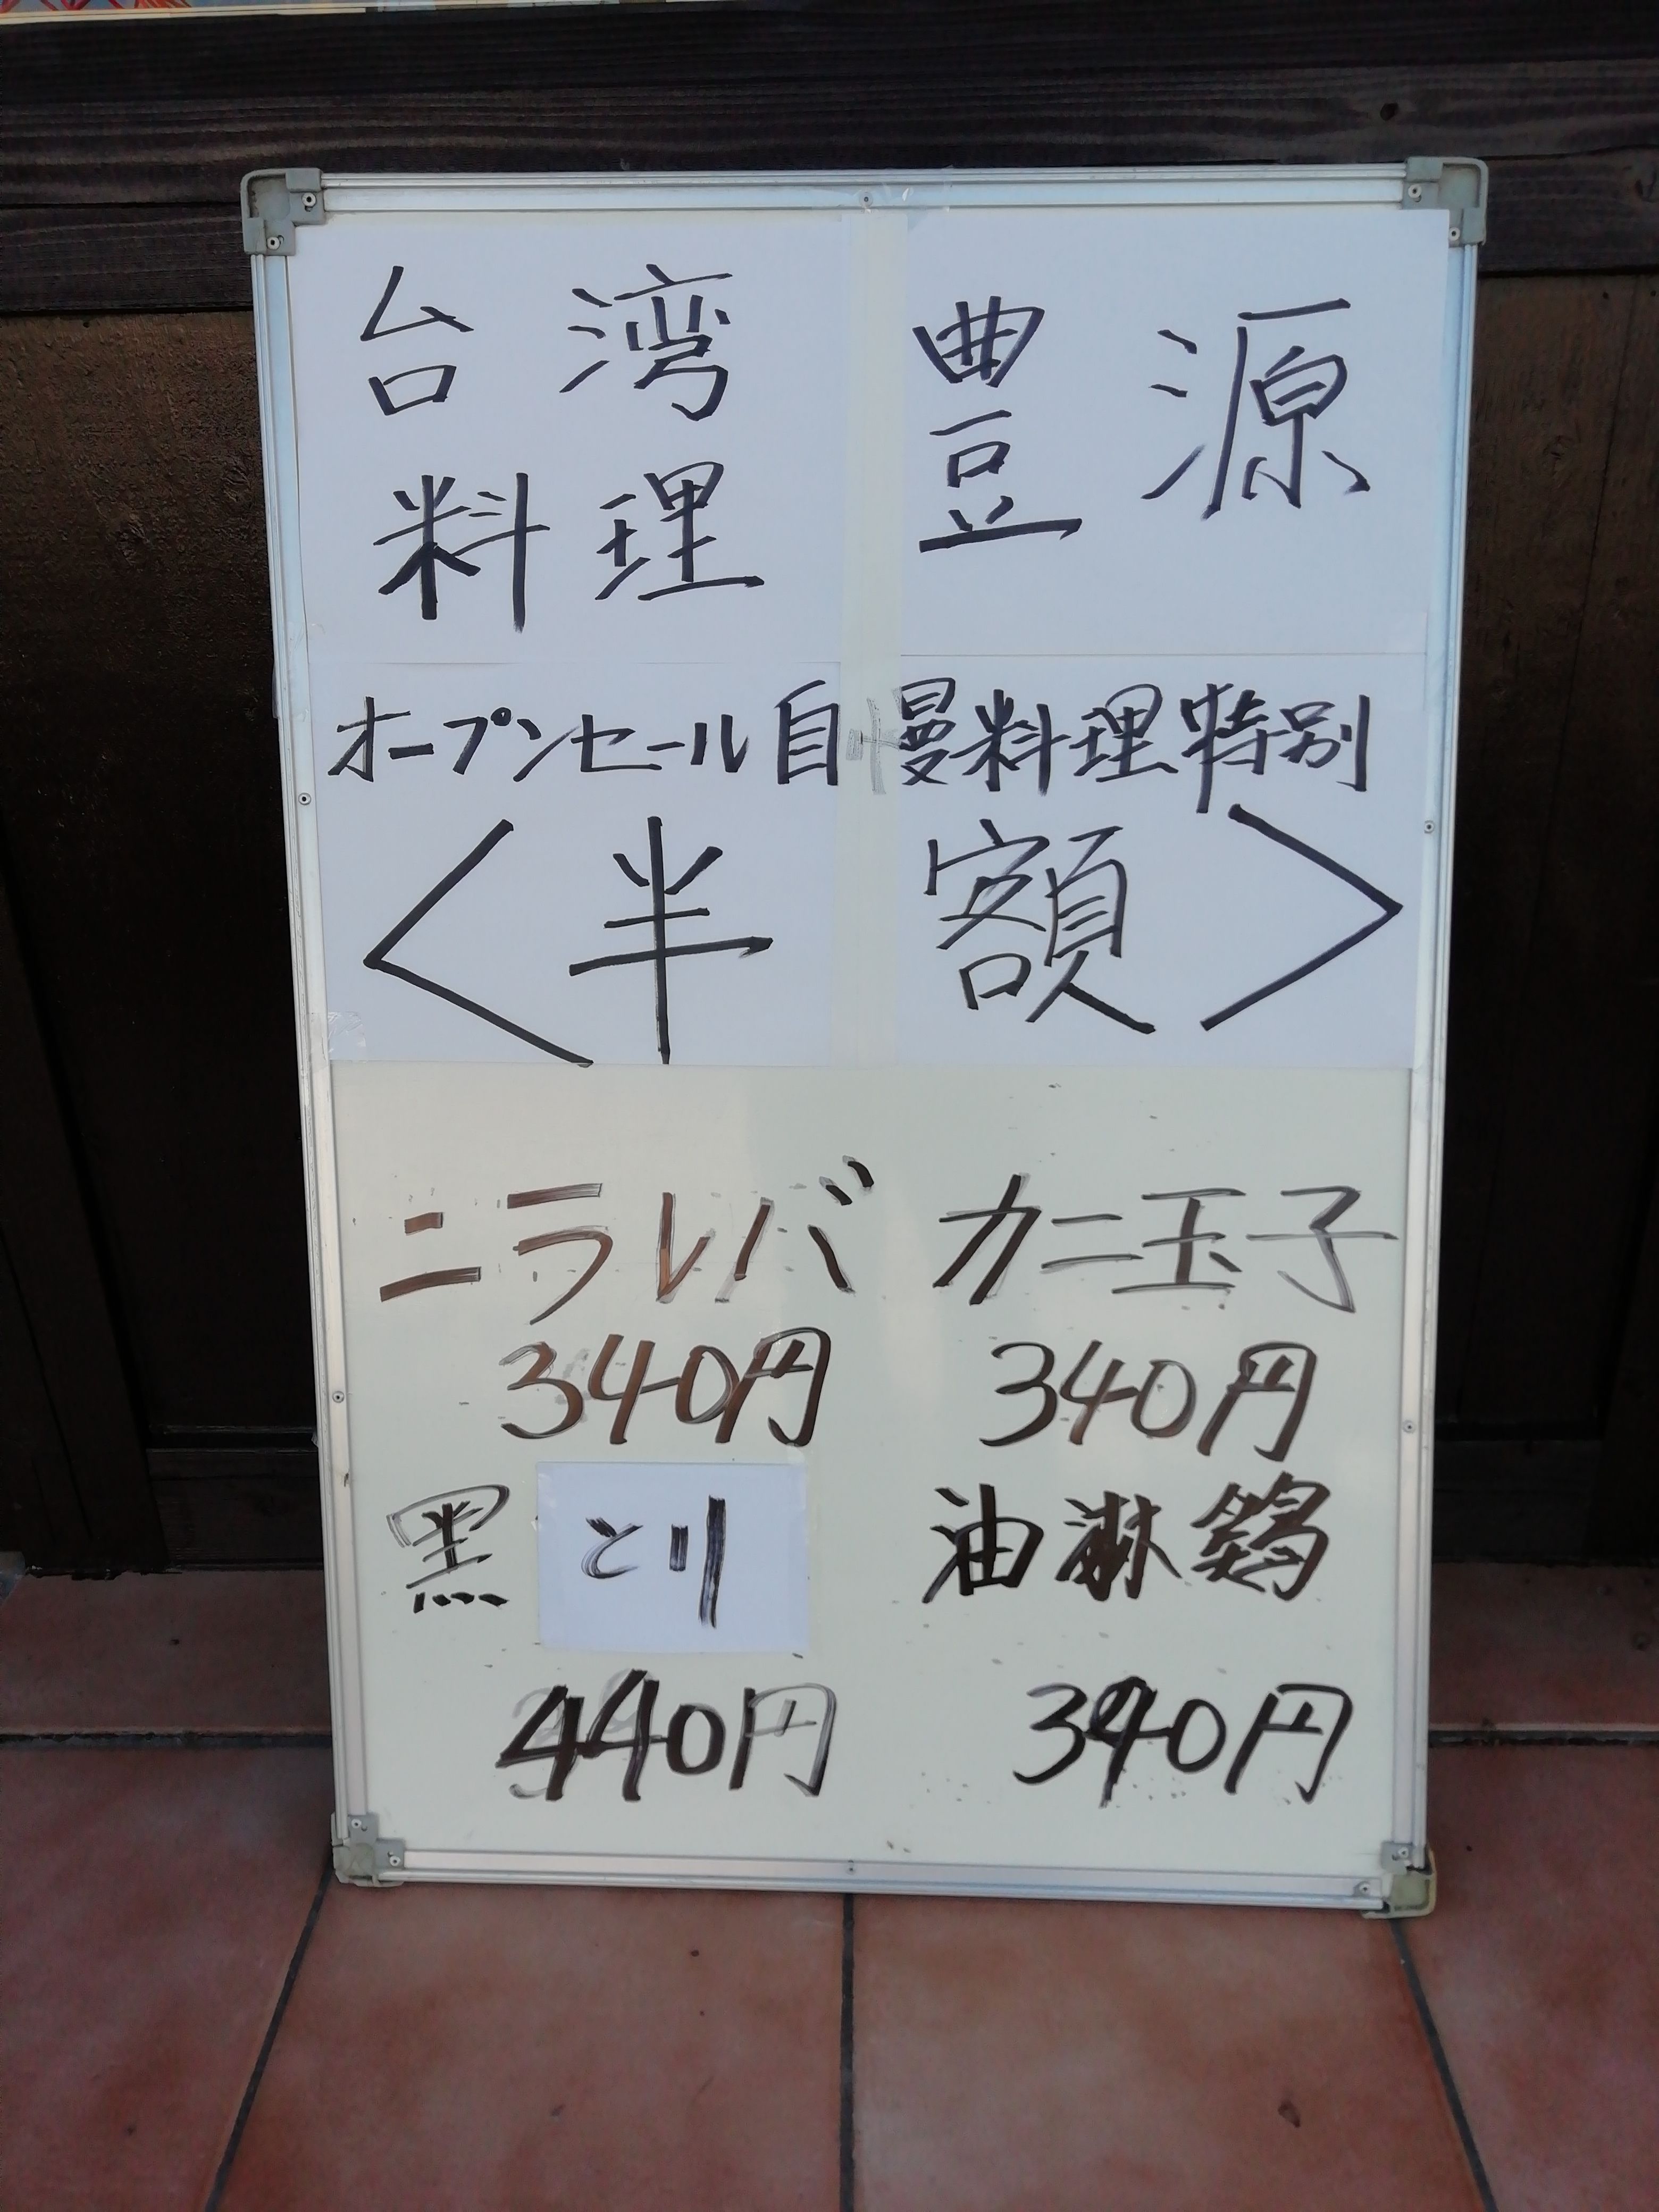 台湾
料理
豊源
オープンセール自慢料理特別
＜半額＞
ニラレバ カニ玉子
340円 340円
黒とり 油淋鶏
440円 390円